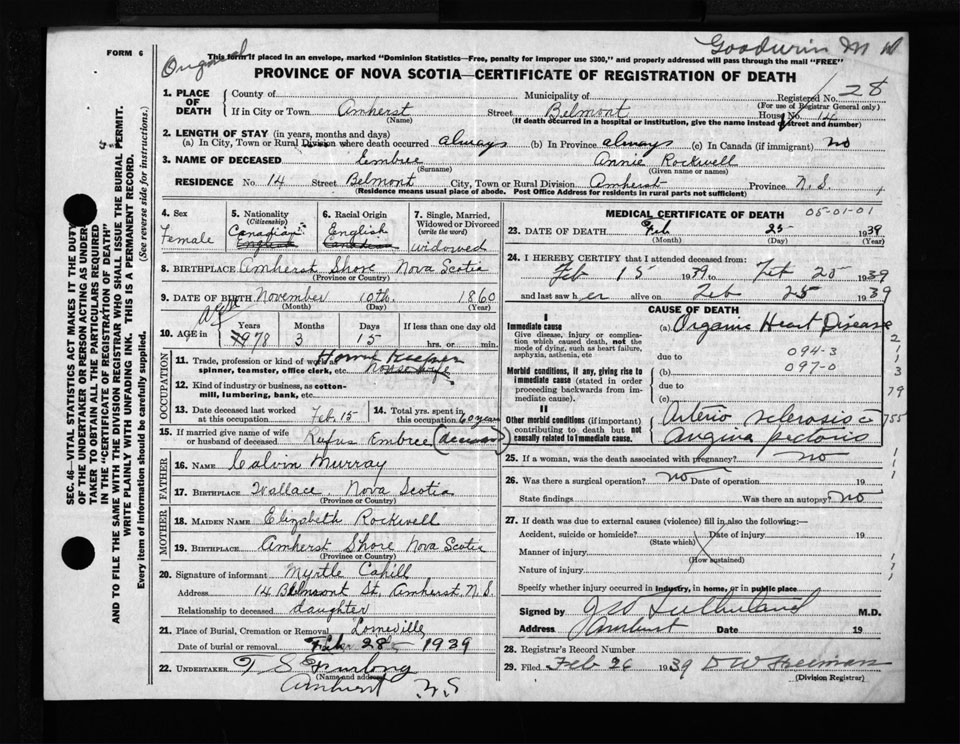 FORM 6
Original
Goodwin M D
This form if placed in an envelope, marked "Dominion Statistics—Free, penalty for improper use $300," and properly addressed will pass through the mail "FREE"
PROVINCE OF NOVA SCOTIA—CERTIFICATE OF REGISTRATION OF DEATH
SEC. 46—VITAL STATISTICS ACT MAKES IT THE DUTY
OF THE UNDERTAKER OR PERSON ACTING AS UNDER-
TAKER TO OBTAIN ALL THE PARTICULARS REQUIRED
IN THE "CERTIFICATE OF REGISTRATION OF DEATH"
AND TO FILE THE SAME WITH THE DIVISION REGISTRAR WHO SHALL ISSUE THE BURIAL PERMIT.
WRITE PLAINLY WITH UNFADING INK. THIS IS A PERMANENT RECORD.
Every item of information should be carefully supplied. (See reverse side for instructions.)
1. PLACE OF DEATH County of Municipality of Registered No. 28
(For use of Registrar General only)
If in City or Town Amherst Street Belmont House No. 14
(Name) (If death occurred in a hospital or institution, give the name instead of street and number)
2. LENGTH OF STAY (in years, months and days)
(a) In City, Town or Rural Division where death occurred always (b) In Province always (c) In Canada (if immigrant) no
3. NAME OF DECEASED Embree Annie Rockwell
(Surname) (Given name or names)
RESIDENCE No. 14 Street Belmont City, Town or Rural Division Amherst Province N.S.
(Residence means usual place of abode. Post Office Address for residents in rural parts not sufficient)
4. Sex Female
5. Nationality (Citizenship) Canadian English
6. Racial Origin English Canadian
7. Single, Married, Widowed or Divorced (write the word) widowed
8. BIRTHPLACE Amherst Shore Nova Scotia
(Province or Country)
9. DATE OF BIRTH November 10th. 1860
(Month) (Day) (Year)
10. AGE in Years Months Days If less than one day
78 3 15 hrs. or min.
OCCUPATION
11. Trade, profession or kind of work as spinner, teamster, office clerk, etc. Home Keeper Housewife
12. Kind of industry or business, as cotton-mill, lumbering, bank, etc.
13. Date deceased last worked at this occupation Feb. 15
14. Total yrs. spent in this occupation 60 years
15. If married give name of wife or husband of deceased Rufus Embree (deceased)
FATHER
16. NAME Calvin Murray
17. BIRTHPLACE Wallace. Nova Scotia
(Province or Country)
MOTHER
18. MAIDEN NAME Elizabeth Rockwell
19. BIRTHPLACE Amherst Shore Nova Scotia
(Province or Country)
20. Signature of informant Myrtle Cahill
Address 14 Belmont St. Amherst, N.S.
Relationship to deceased daughter
21. Place of Burial, Cremation or Removal Lorneville
Date of burial or removal Feb 28 1939
22. UNDERTAKER T. S. Furlong
(Name and address)
Amherst N S
MEDICAL CERTIFICATE OF DEATH 05-01-01
23. DATE OF DEATH Feb 25 1939
(Month) (Day) (Year)
24. I HEREBY CERTIFY that I attended deceased from:
Feb 15 1939 to Feb 25 1939
and last saw her alive on Feb 25 1939
CAUSE OF DEATH
I
Immediate cause
Give disease, injury or complication which caused death, not the mode of dying, such as heart failure, asphyxia, asthenia, etc
(a) Organic Heart Disease
due to 094-3
Morbid conditions, if any, giving rise to immediate cause (stated in order proceeding backwards from immediate cause).
(b) 097-0
due to
(c)
II
Other morbid conditions (if important) contributing to death but not causally related to immediate cause.
Arterio sclerosis c̄
Angina pectoris
2
1
1
3
79
755
25. If a woman, was the death associated with pregnancy? no
26. Was there a surgical operation? no Date of operation 19
State findings Was there an autopsy? no
27. If death was due to external causes (violence) fill in also the following:—
Accident, suicide or homicide? Date of injury 19
(State which)
Manner of injury
(How sustained)
Nature of injury
Specify whether injury occurred in industry, in home, or in public place
Signed by Sutherland M.D.
Address Amherst Date 19
28. Registrar's Record Number
29. Filed Feb 26 1939 D W Freeman
(Division Registrar)